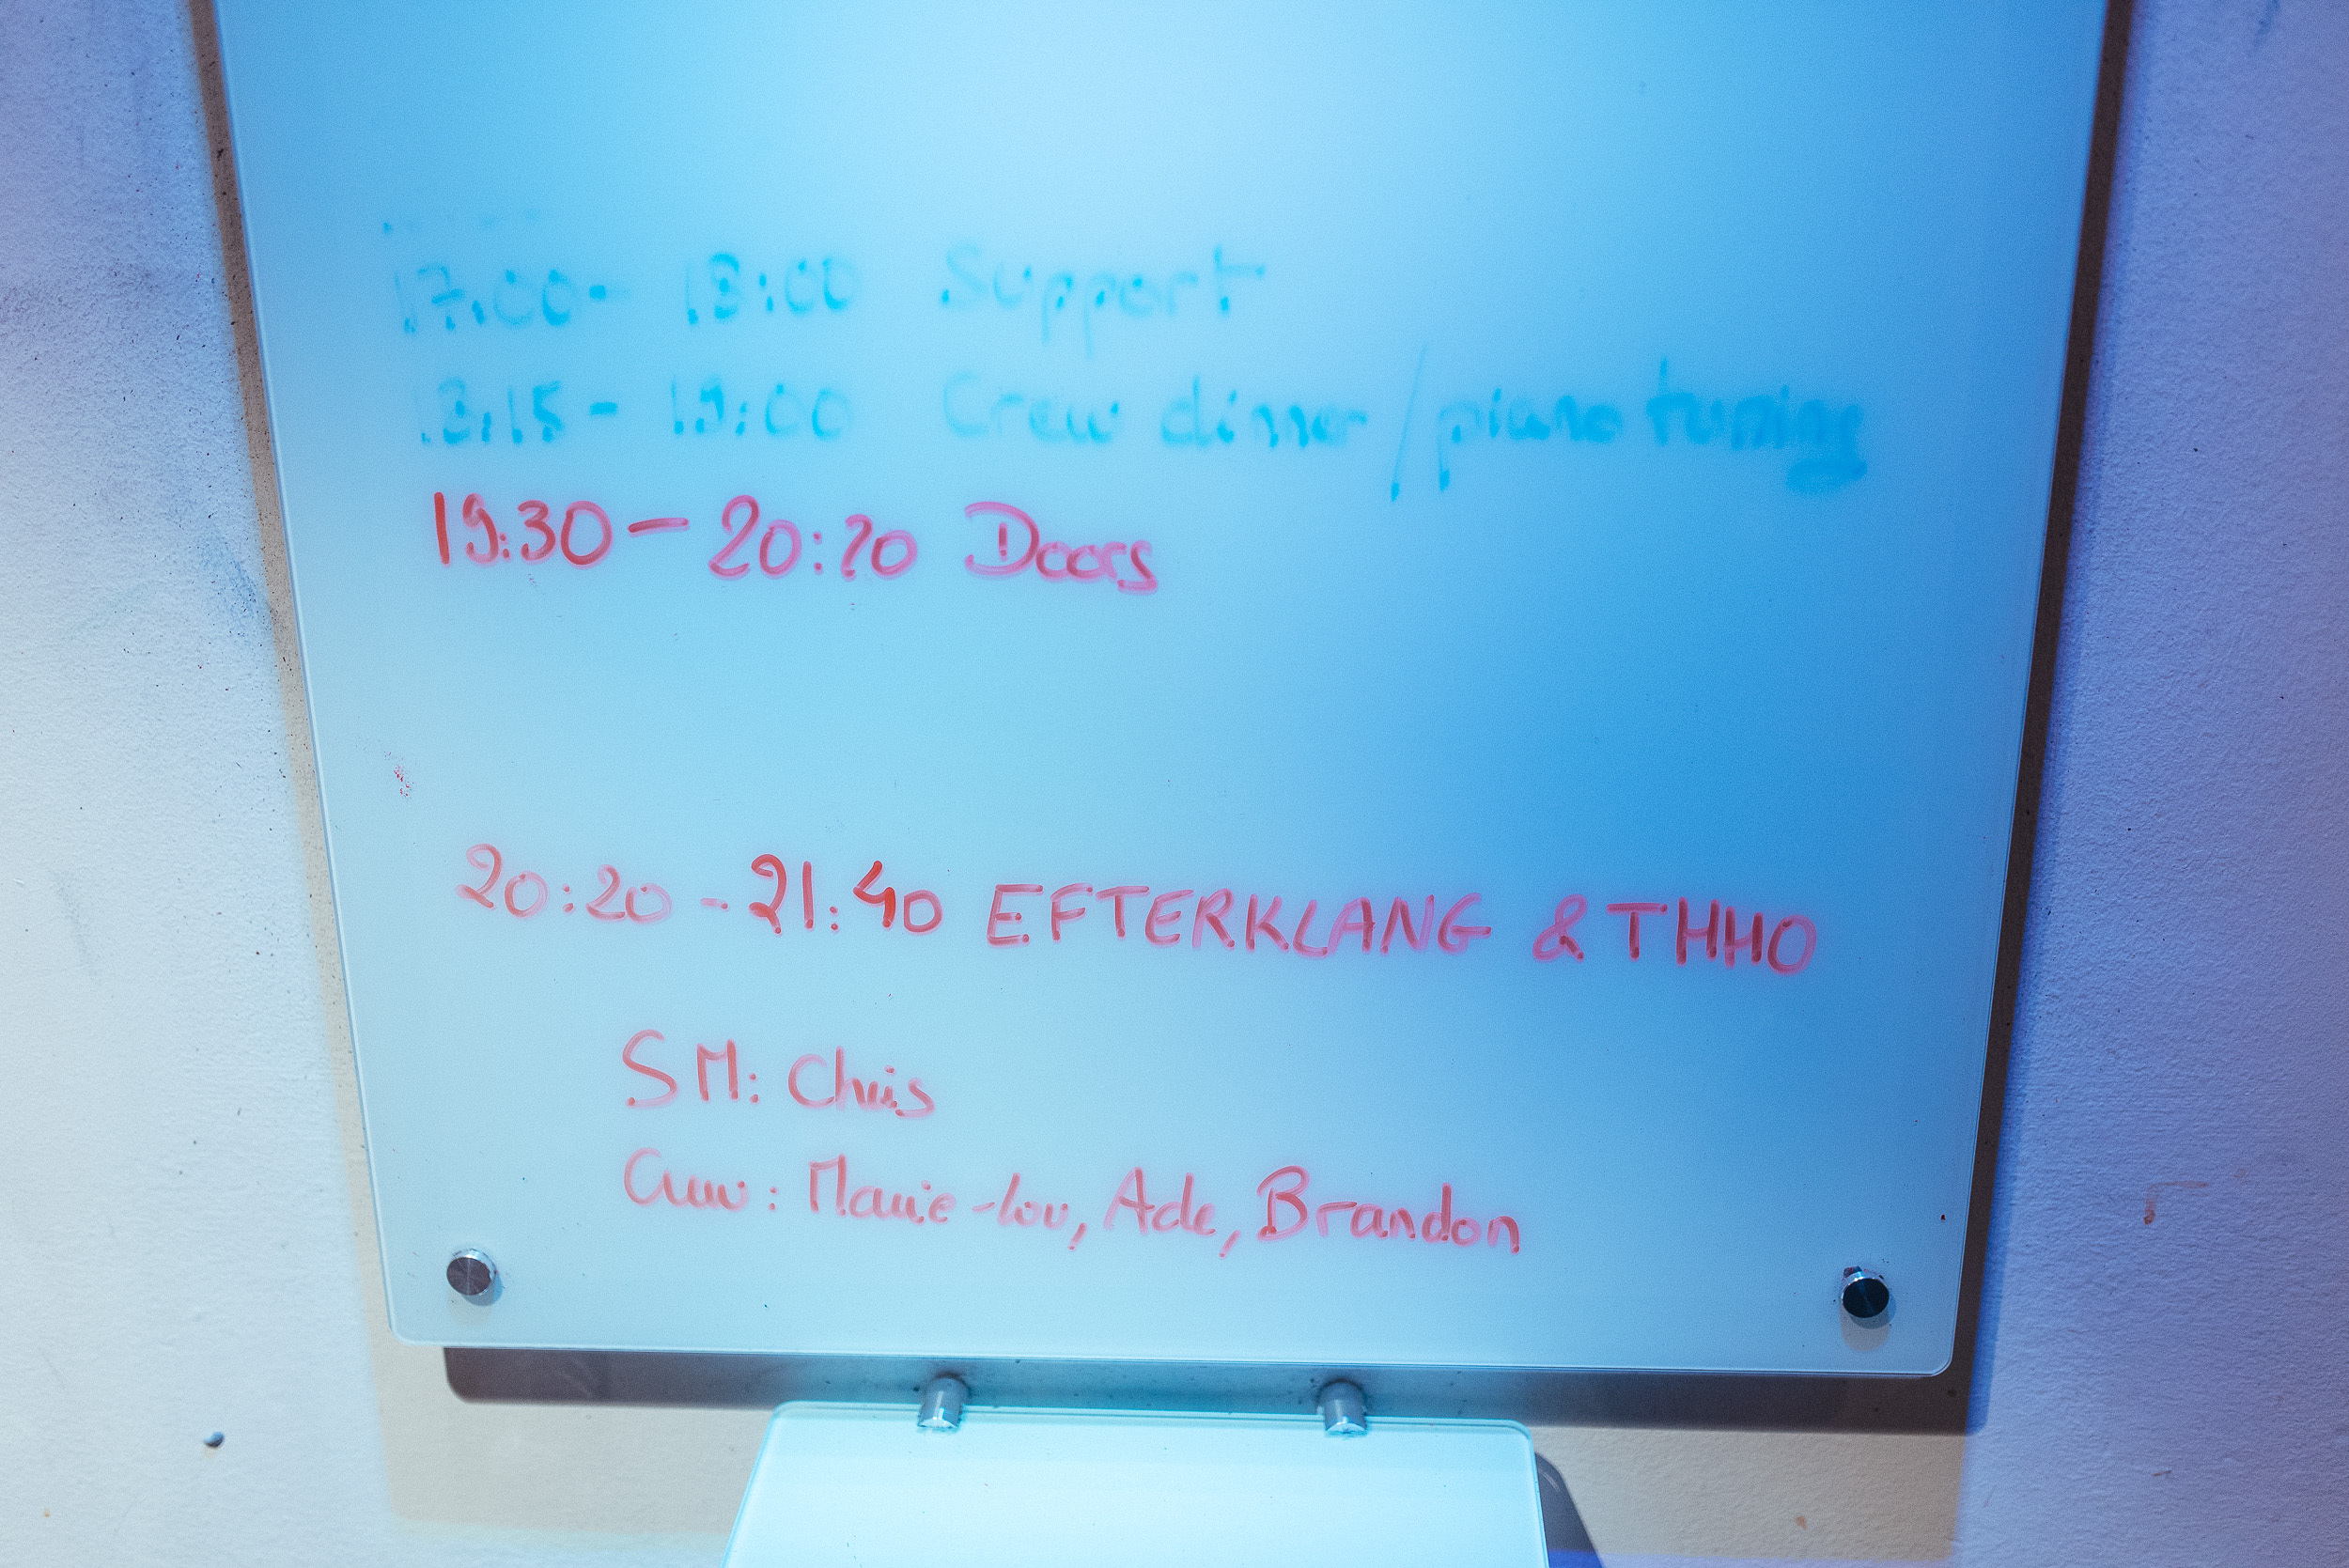 17:00 - 18:00 Support
18:15 - 19:00 Crew dinner / piano tuning
19:30 - 20:20 Doors
20:20 - 21:40 EFTERKLANG & THHO
SM: Chris
Crew: Marie-lou, Ade, Brandon